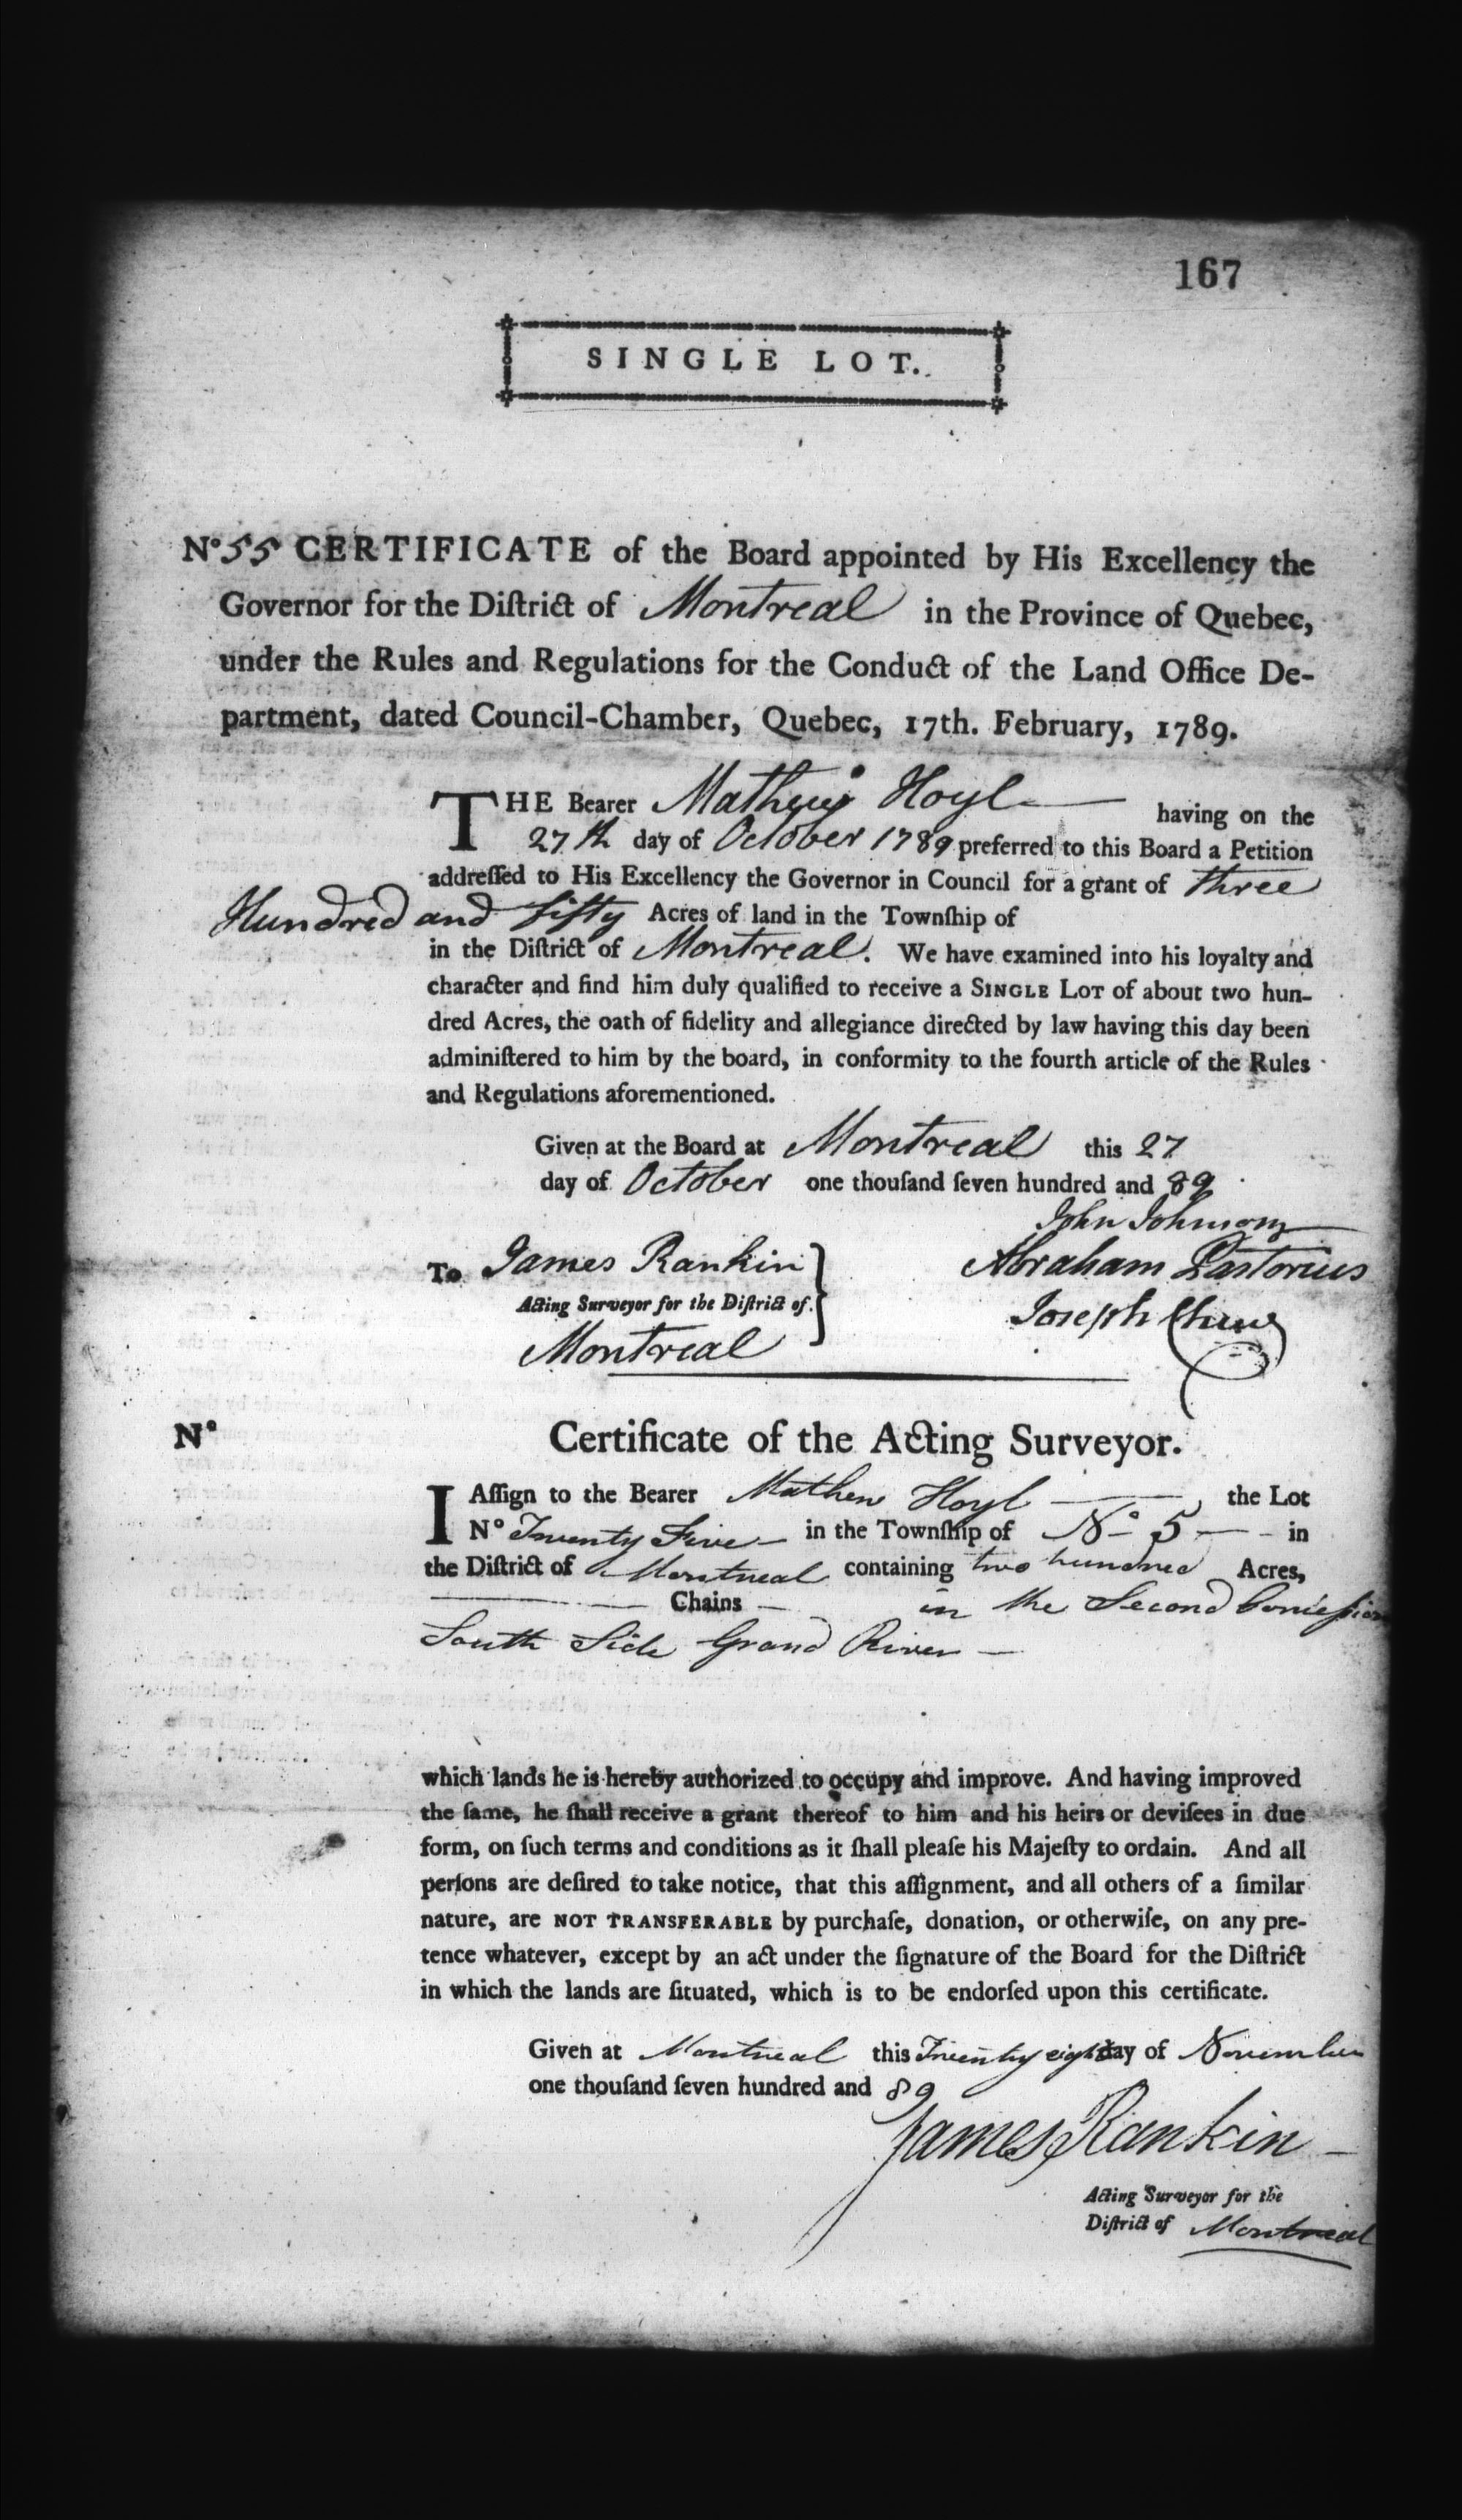 167
SINGLE LOT.
No. 55 CERTIFICATE of the Board appointed by His Excellency the
Governor for the Diſtrict of Montreal in the Province of Quebec,
under the Rules and Regulations for the Conduct of the Land Office De-
partment, dated Council-Chamber, Quebec, 17th. February, 1789.
THE Bearer Hoyl having on the
27th day of October 1789 preferred to this Board a Petition
addreſſed to His Excellency the Governor in Council for a grant of three
Hundred and fifty Acres of land in the Townſhip of
in the Diſtrict of Montreal. We have examined into his loyalty and
character and find him duly qualified to receive a SINGLE LOT of about two hun-
dred Acres, the oath of fidelity and allegiance directed by law having this day been
adminiſtered to him by the board, in conformity to the fourth article of the Rules
and Regulations aforementioned.
Given at the Board at Montreal this 27
day of October one thouſand ſeven hundred and 89
John Johnson
To James Rankin
Abraham Pastorius
Acting Surveyor for the Diſtrict of
Joseph Chew
Montreal
No Certificate of the Acting Surveyor.
I Aſſign to the Bearer Mathew Hoyl the Lot
No Twenty Five in the Townſhip of No 5 in
the Diſtrict of Montreal containing two hundred Acres,
Chains in the Second Conceſsion
South Side Grand River
which lands he is hereby authorized to occupy and improve. And having improved
the ſame, he ſhall receive a grant thereof to him and his heirs or deviſees in due
form, on ſuch terms and conditions as it ſhall pleaſe his Majeſty to ordain. And all
perſons are deſired to take notice, that this aſſignment, and all others of a ſimilar
nature, are NOT TRANSFERABLE by purchaſe, donation, or otherwiſe, on any pre-
tence whatever, except by an act under the ſignature of the Board for the Diſtrict
in which the lands are ſituated, which is to be endorſed upon this certificate.
Given at Montreal this Twenty eight day of November
one thouſand ſeven hundred and 89
James Rankin
Acting Surveyor for the
Diſtrict of Montreal